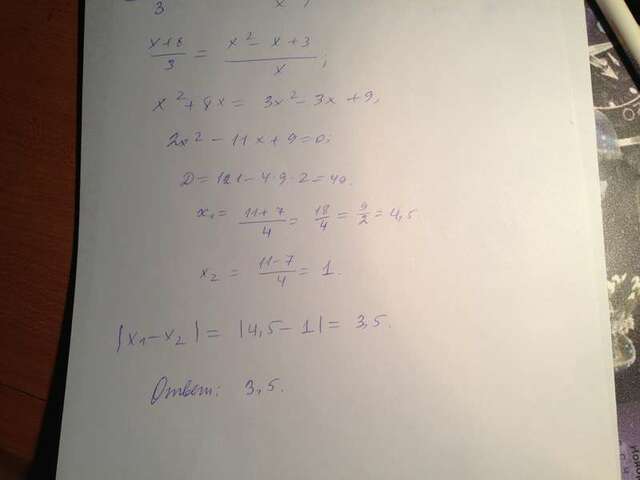 3 x
x+8/3 = x² - x + 3/x;
x² + 8x = 3x² - 3x + 9;
2x² - 11x + 9 = 0;
D = 121 - 4·9·2 = 49.
x₁ = 11+7/4 = 18/4 = 9/2 = 4,5
x₂ = 11-7/4 = 1.
|x₁ - x₂| = |4,5 - 1| = 3,5.
Ответ: 3,5.